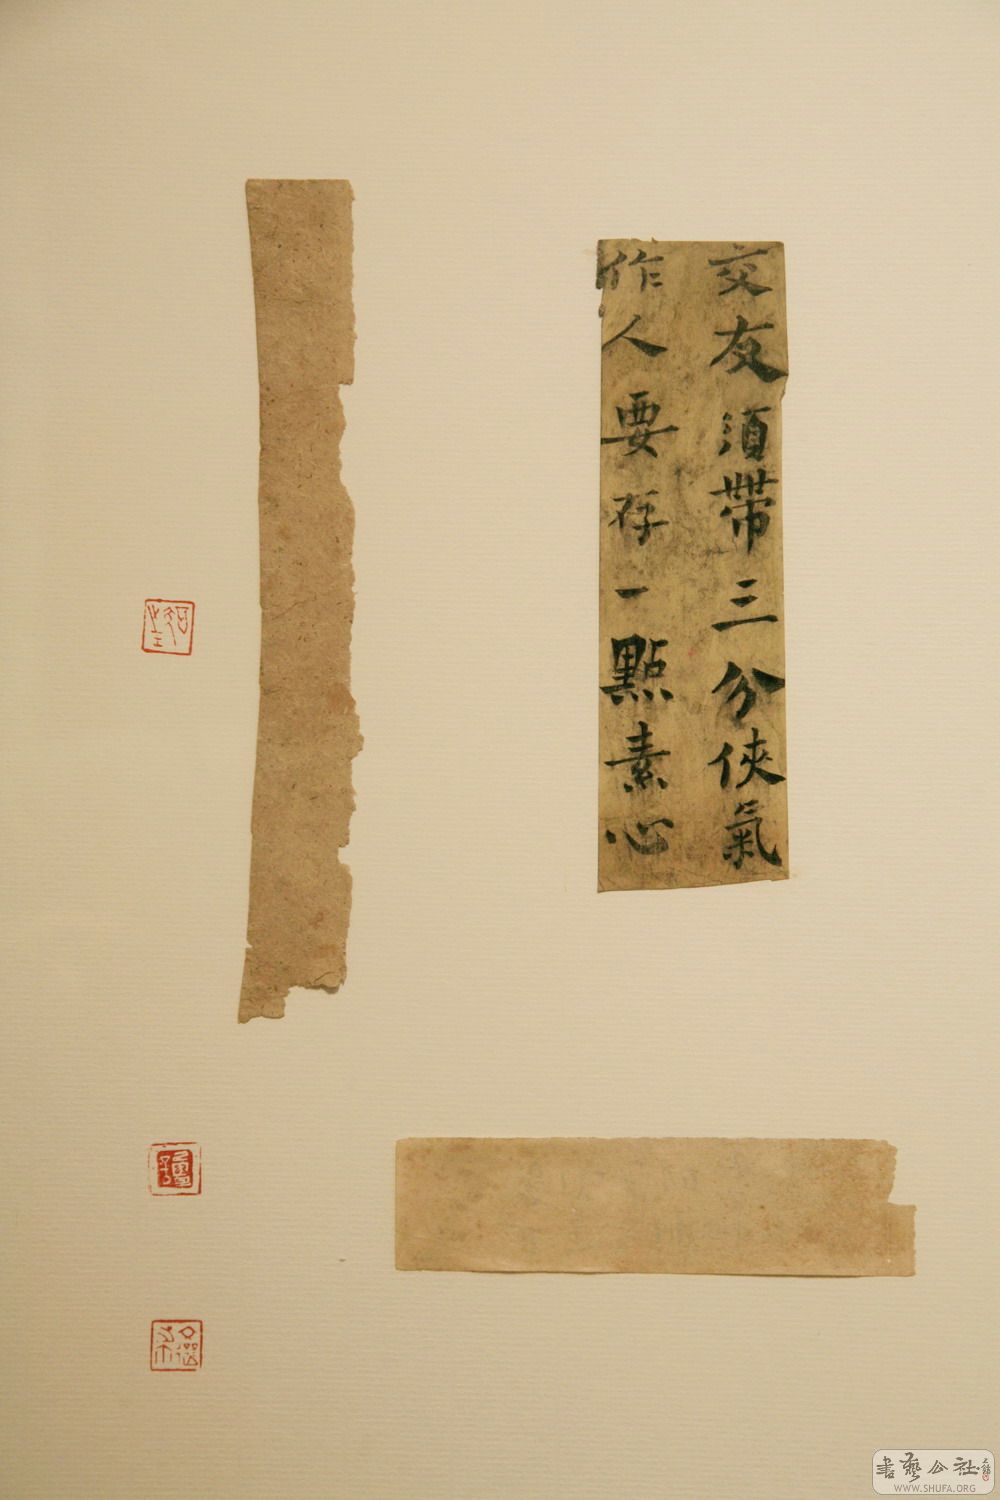 交友須帶三分俠氣
作人要存一點素心
書藝公社
WWW.SHUFA.ORG